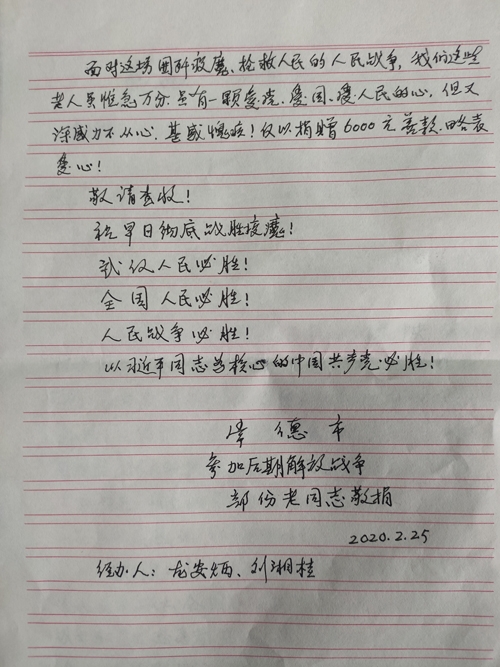 面对这场围歼疫魔、抢救人民的人民战争，我们这些
老人员惟急万分，虽有一颗爱党、爱国、爱人民的心，但又
深感力不从心，甚感愧疚！仅以捐赠6000元善款，略表
爱心！
敬请查收！
祝早日彻底战胜疫魔！
武汉人民必胜！
全国人民必胜！
人民战争必胜！
以习近平同志为核心的中国共产党必胜！
常德市
参加后期解放战争
部份老同志敬捐
2020.2.25
经办人：龙安炳、刘湘桂